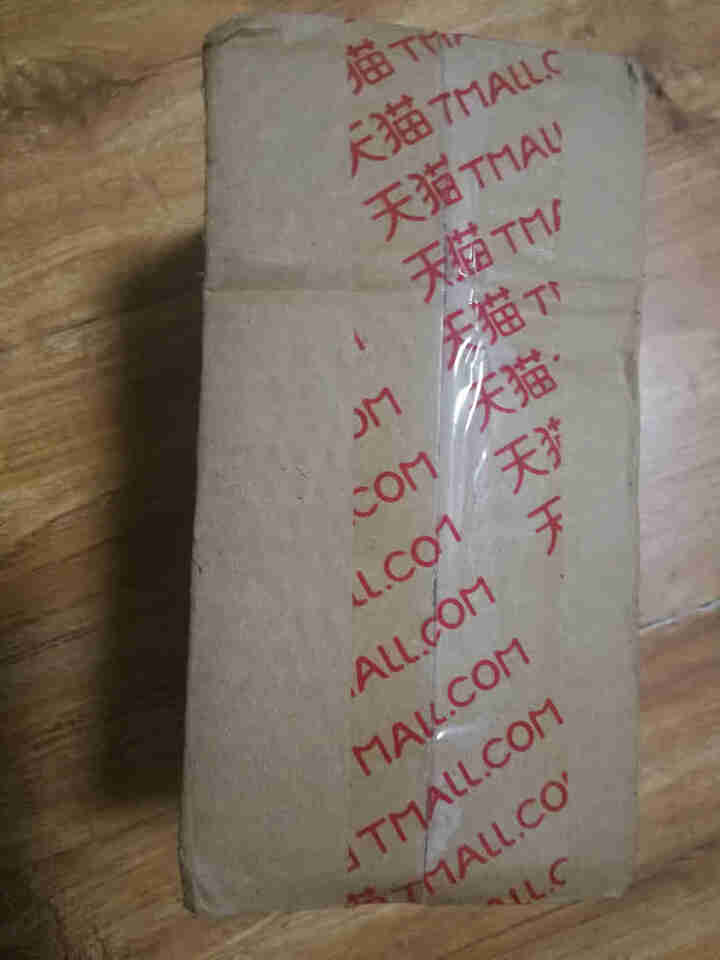 猫TM
天猫TMALL.C
天猫TMALL
天猫TMA
天猫T
天猫
天猫
天
OM
.COM
LL.CO
ALL.COM
MALL.COM
TMALL.COM
猫TMALL.CO
LL.C